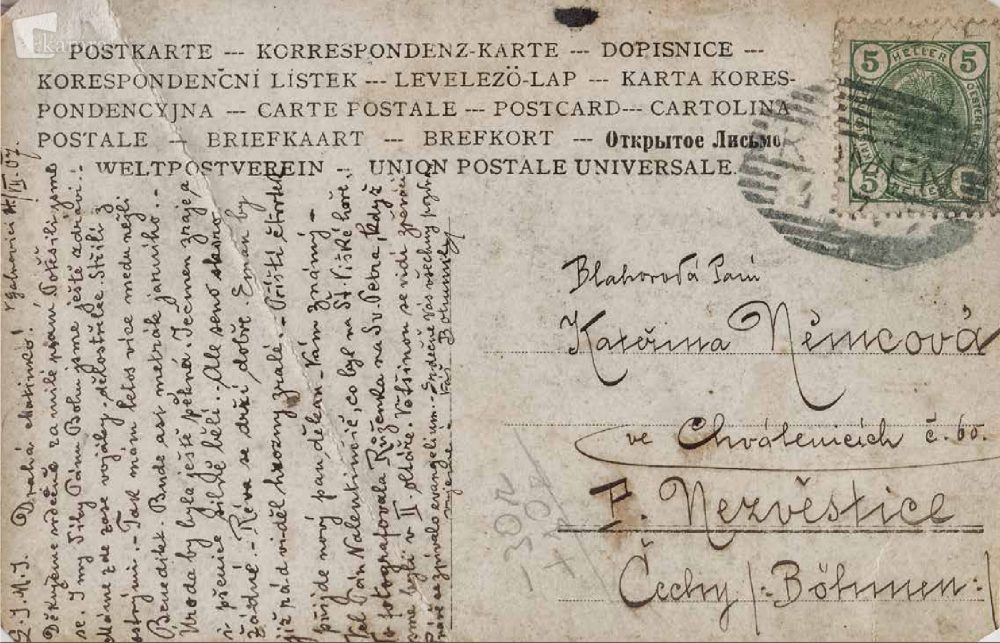 POSTKARTE --- KORRESPONDENZ-KARTE --- DOPISNICE ---
KORESPONDENČNÍ LÍSTEK --- LEVELEZŐ-LAP --- KARTA KORES-
PONDENCYJNA --- CARTE POSTALE --- POSTCARD --- CARTOLINA
POSTALE --- BRIEFKAART --- BREFKORT --- Открытое Письмо
WELTPOSTVEREIN --- UNION POSTALE UNIVERSALE.
5 HELLER 5
5 HELLER
Kateřina Němcová
ve Chválenicích č. 60.
P. Nezvěstice
Čechy /: Böhmen :/
Drahá Matinko!
Děkujeme srdečně za milé psaní
se. I my díky Pánu Bohu jsme ještě zdrávi..
Máme zde zase vojáky, dělostřelce. Střílí z
ostrými.- Tak mám letos více medu nežli
Benedikt. Bude asi metrák jarního..
Úroda by byla ještě pěkná. Ječmen zraje a
i pšenice již dě bělí.. Ale seno skoro
žádné.- Réva se drží dobře.
již rád viděl hrozny zralé.- Příští čtvrtek
přijde nový pan děkan - Vám známý -
Pán Valentinič, co byl na Sv. Višké hoře.
fotografovala Růženka na Sv. Petra, když
sme byli v II
evangelium.. Srdečně Vás všechny
Bohumil
-30
+